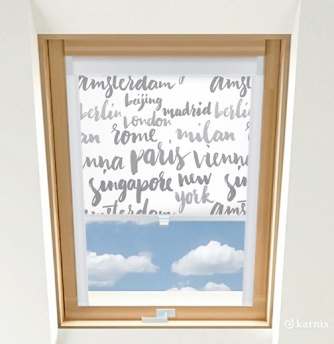 amsterdam
beijing
berlin
london
madrid berlin
rome
milan
vienna
paris
vienna
singapore
new
york
amsterdam
karnix